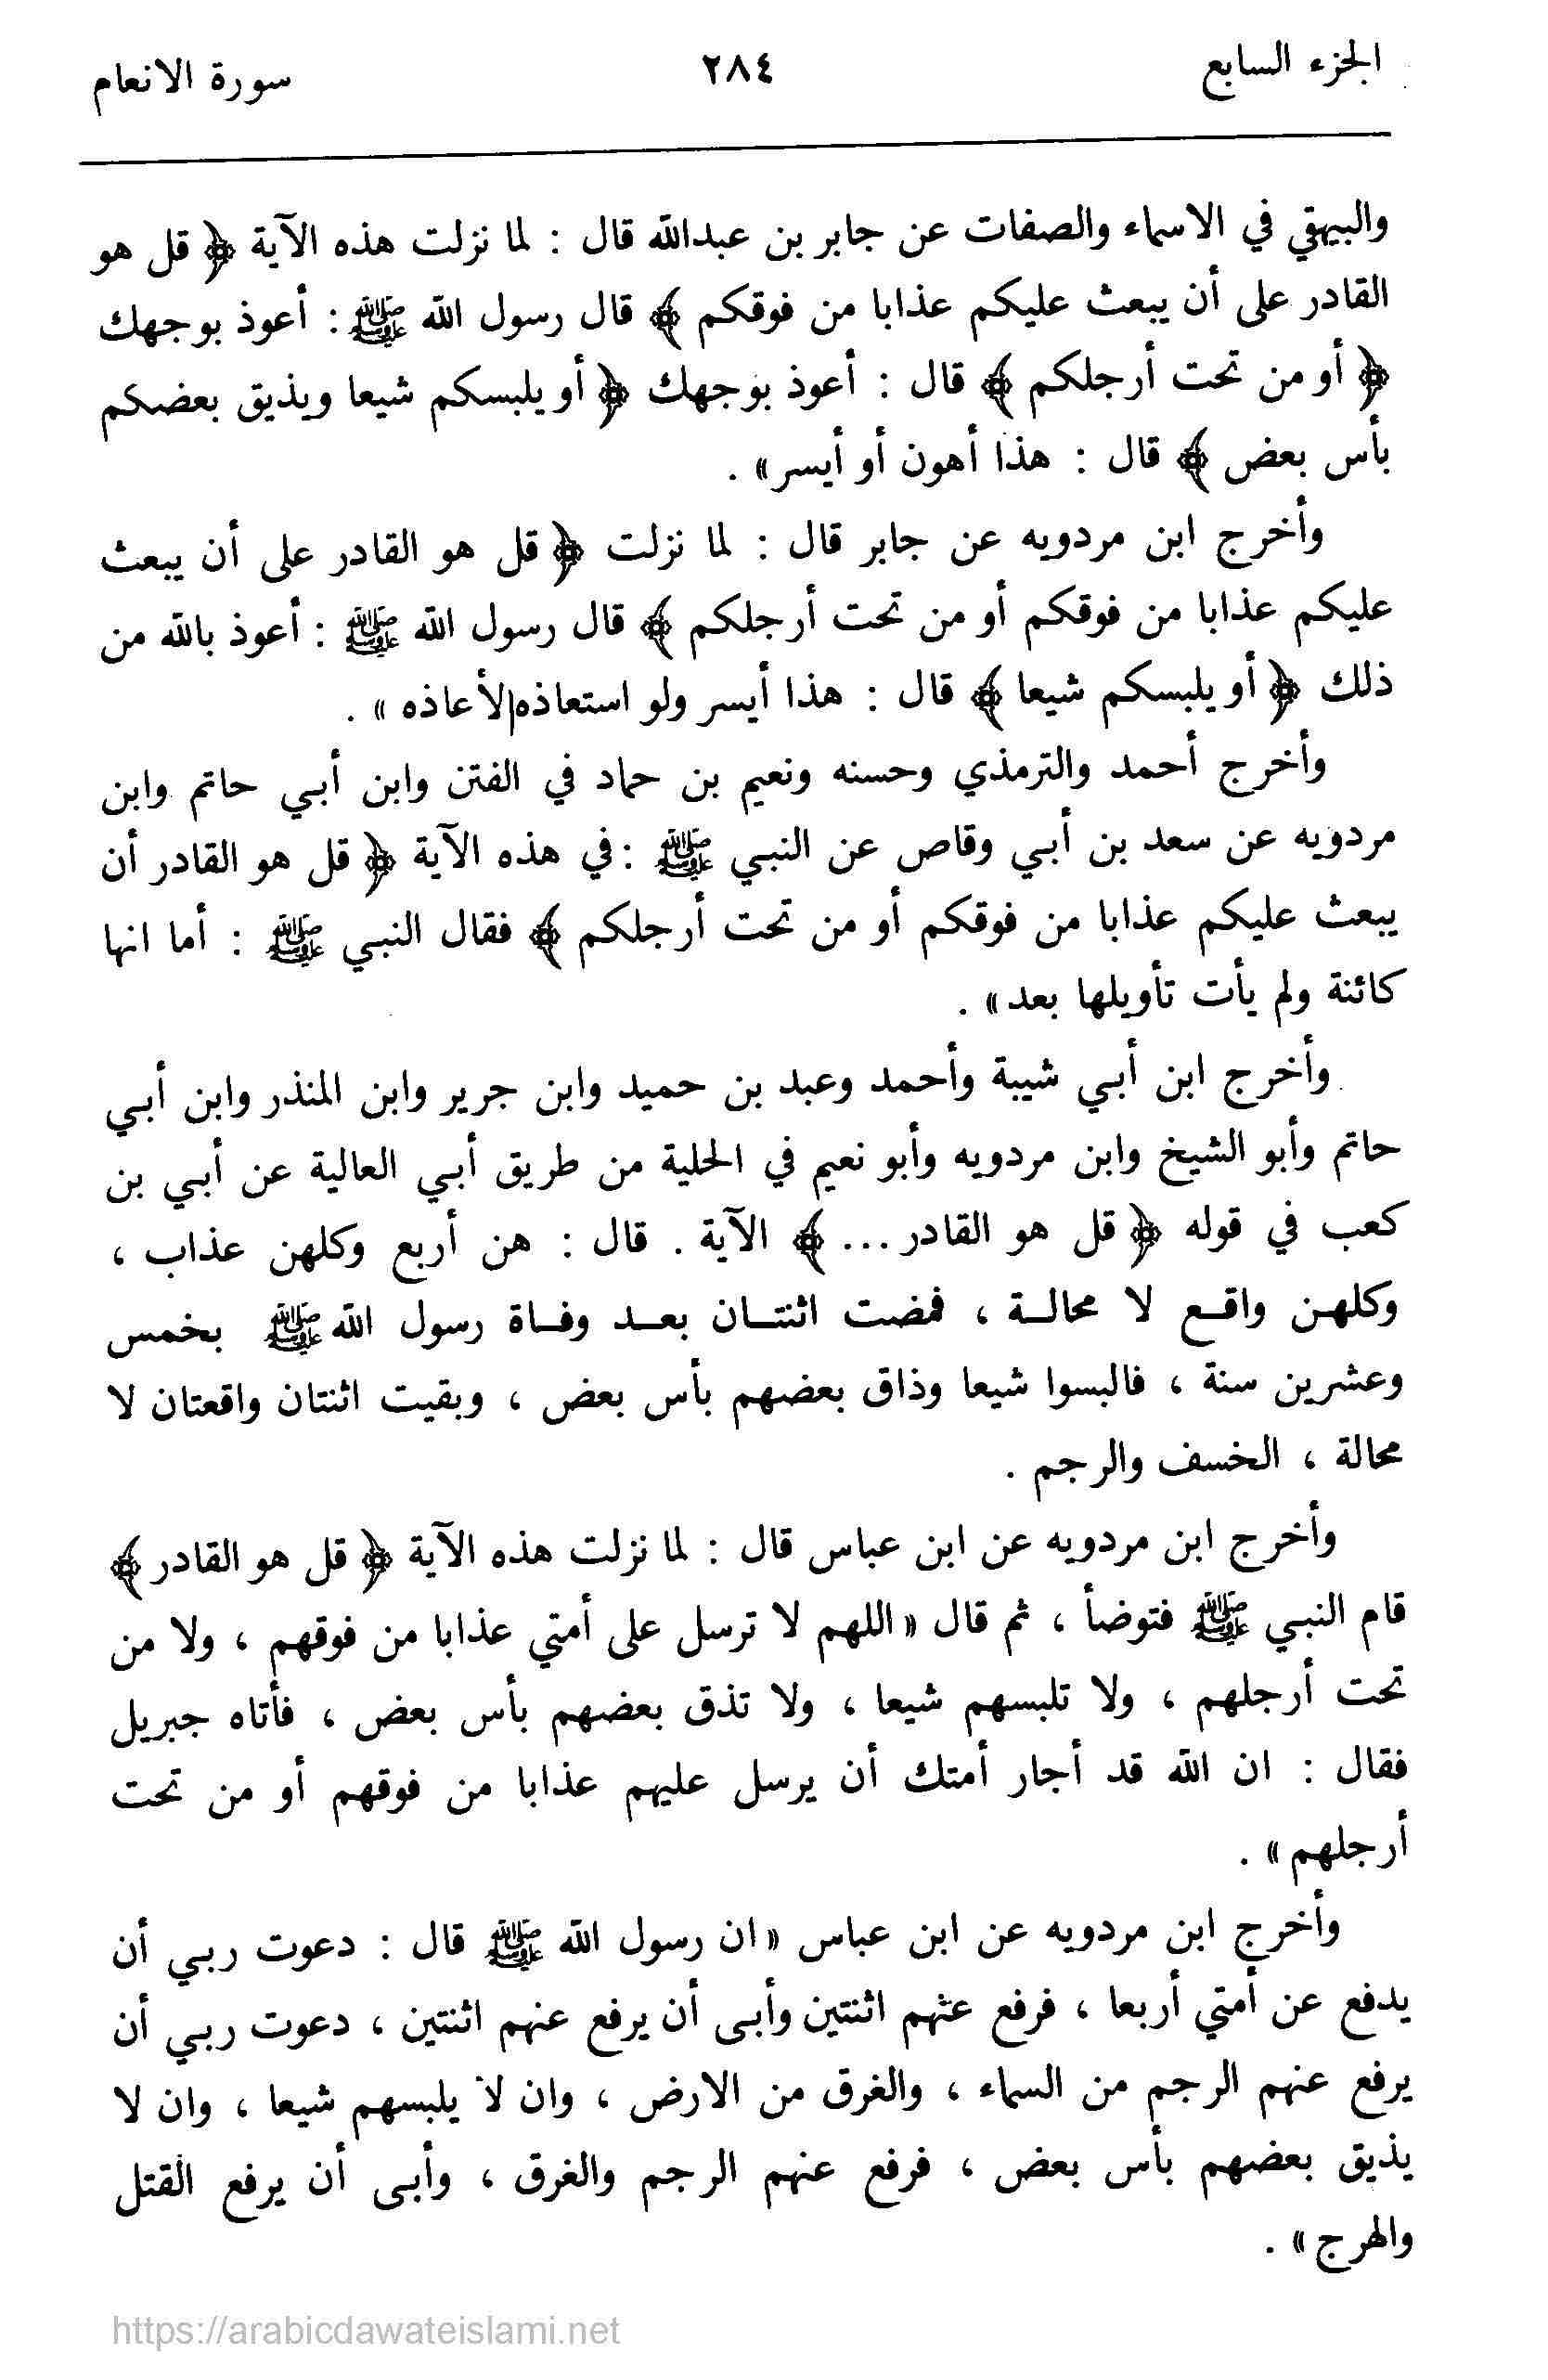 الجزء السابع ٢٨٤ سورة الانعام
والبيهقي في الاسماء والصفات عن جابر بن عبدالله قال : لما نزلت هذه الآية ﴿ قل هو
القادر على أن يبعث عليكم عذابا من فوقكم ﴾ قال رسول الله ﷺ : أعوذ بوجهك
﴿ أو من تحت أرجلكم ﴾ قال : أعوذ بوجهك ﴿ أو يلبسكم شيعا ويذيق بعضكم
بأس بعض ﴾ قال : هذا أهون أو أيسر» .
وأخرج ابن مردويه عن جابر قال : لما نزلت ﴿ قل هو القادر على أن يبعث
عليكم عذابا من فوقكم أو من تحت أرجلكم ﴾ قال رسول الله ﷺ : أعوذ بالله من
ذلك ﴿ أو يلبسكم شيعا ﴾ قال : هذا أيسر ولو استعاذه لأعاذه » .
وأخرج أحمد والترمذي وحسنه ونعيم بن حماد في الفتن وابن أبي حاتم وابن
مردويه عن سعد بن أبي وقاص عن النبي ﷺ :في هذه الآية ﴿ قل هو القادر أن
يبعث عليكم عذابا من فوقكم أو من تحت أرجلكم ﴾ فقال النبي ﷺ : أما انها
كائنة ولم يأت تأويلها بعد» .
وأخرج ابن أبي شيبة وأحمد وعبد بن حميد وابن جرير وابن المنذر وابن أبي
حاتم وأبو الشيخ وابن مردويه وأبو نعيم في الحلية من طريق أبي العالية عن أبي بن
كعب في قوله ﴿ قل هو القادر ... ﴾ الآية . قال : هن أربع وكلهن عذاب ،
وكلهن واقع لا محالة ، فمضت اثنتان بعد وفاة رسول الله ﷺ بخمس
وعشرين سنة ، فالبسوا شيعا وذاق بعضهم بأس بعض ، وبقيت اثنتان واقعتان لا
محالة ، الخسف والرجم .
وأخرج ابن مردويه عن ابن عباس قال : لما نزلت هذه الآية ﴿ قل هو القادر ﴾
قام النبي ﷺ فتوضأ ، ثم قال « اللهم لا ترسل على أمتي عذابا من فوقهم ، ولا من
تحت أرجلهم ، ولا تلبسهم شيعا ، ولا تذق بعضهم بأس بعض ، فأتاه جبريل
فقال : ان الله قد أجار أمتك أن يرسل عليهم عذابا من فوقهم أو من تحت
أرجلهم » .
وأخرج ابن مردويه عن ابن عباس « ان رسول الله ﷺ قال : دعوت ربي أن
يدفع عن أمتي أربعا ، فرفع عنهم اثنتين وأبى أن يرفع عنهم اثنتين ، دعوت ربي أن
يرفع عنهم الرجم من السماء ، والغرق من الارض ، وان لا يلبسهم شيعا ، وان لا
يذيق بعضهم بأس بعض ، فرفع عنهم الرجم والغرق ، وأبى أن يرفع القتل
والهرج » .
https://arabicdawateislami.net